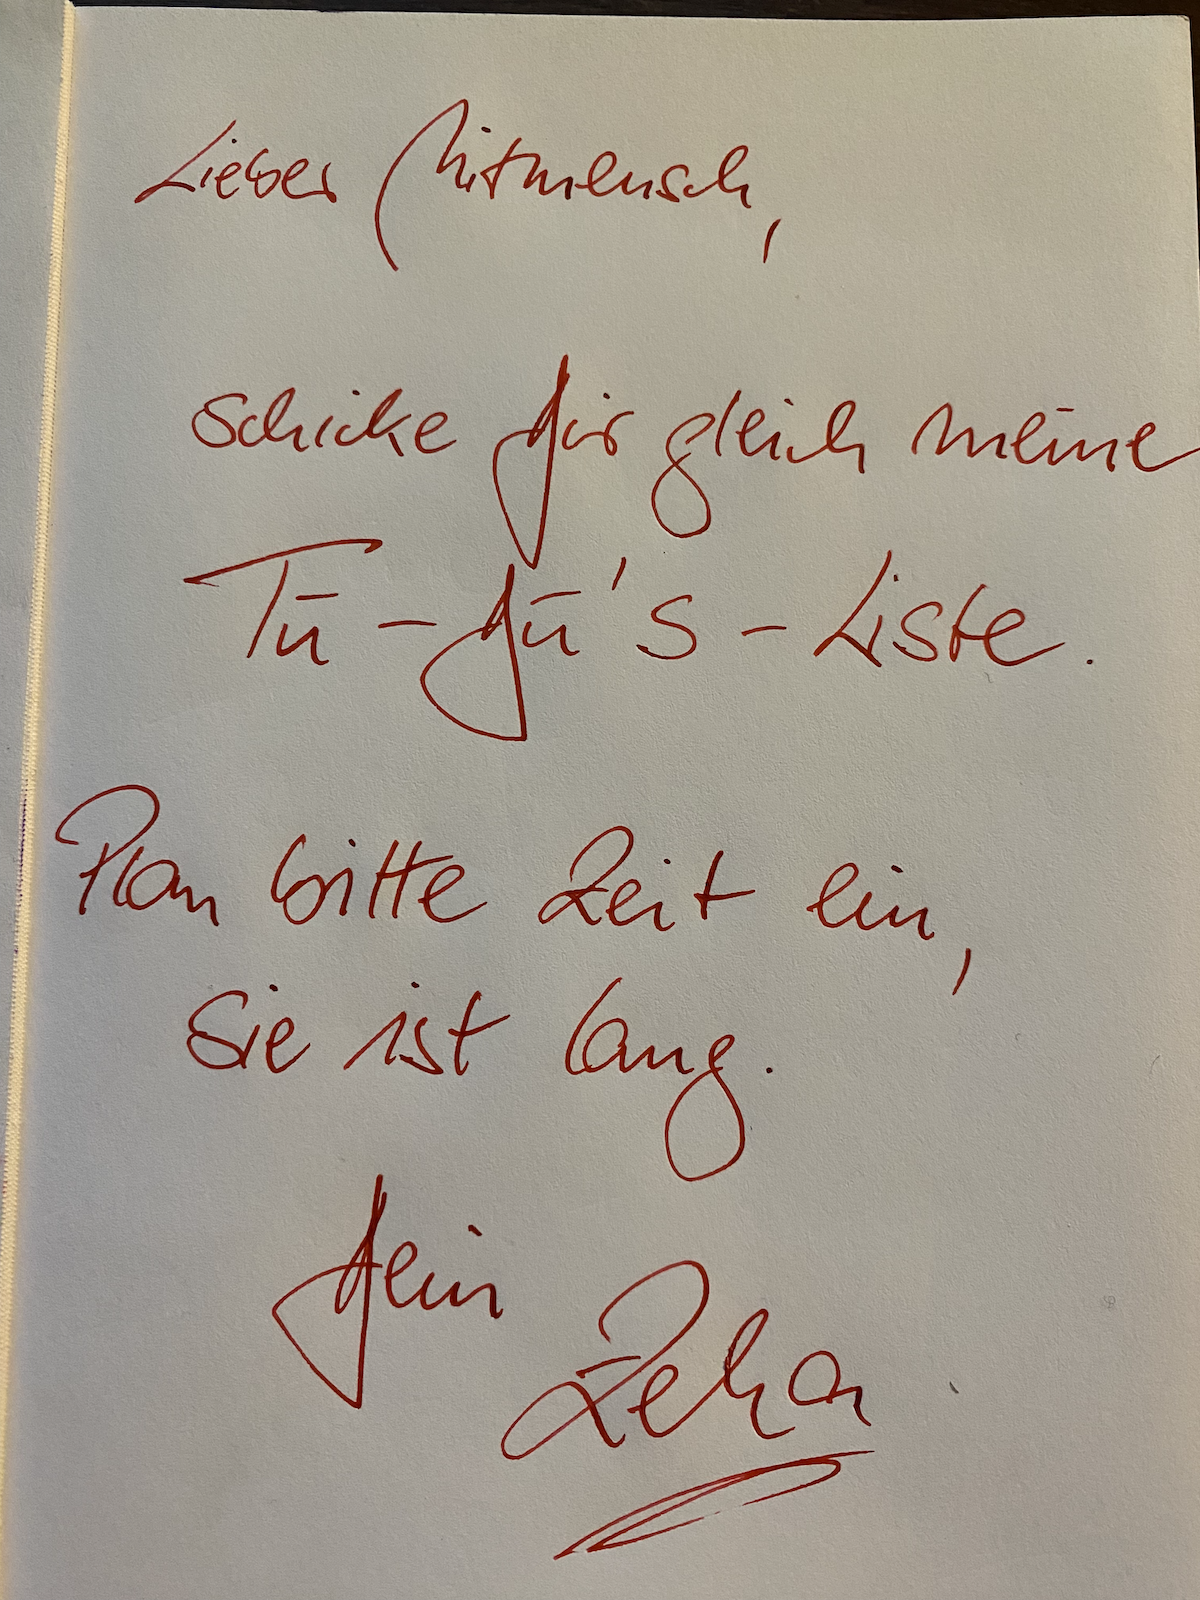 Lieber Mitmensch,
schicke dir gleich meine
Tū-dū's-Liste.
Plan bitte Zeit ein,
sie ist lang.
dein
Zeha